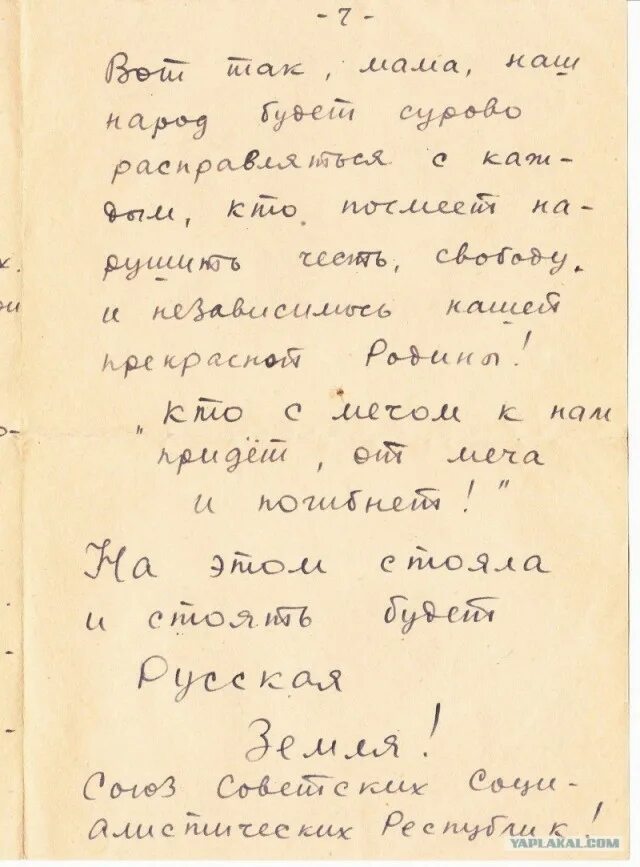 - 7 -
Вот так, мама, наш
народ будет сурово
расправляться с каж-
дым, кто посмеет на-
рушить честь, свободу,
и независимось нашей
прекрасной Родины!
„кто с мечом к нам
придёт, от меча
и погибнет!"
На этом стояла
и стоять будет
Русская
Земля!
Союз Советских Соци-
алистических Республик!
х.
-
YAPLAKAL.COM